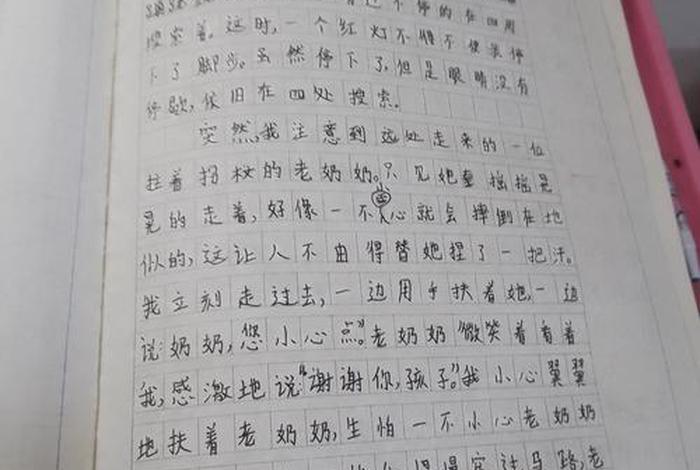 不停的在四周
搜索着。这时,一个红灯不得不使我停
下了脚步。虽然停下了,但是眼睛没有
停歇,依旧在四处搜索。
突然,我注意到远处走来的一位
拄着拐杖的老奶奶。只见她摇摇晃
晃的走着,好像一不小心就会摔倒在地
似的,这让人不由得替她捏了一把汗。
我立刻走过去,一边用手扶着她,一边
说:奶奶,您小心点。”老奶奶微笑着看着
我,感激地说:“谢谢你,孩子。”我小心翼翼
地扶着老奶奶,生怕一不小心老奶奶
过马路,老